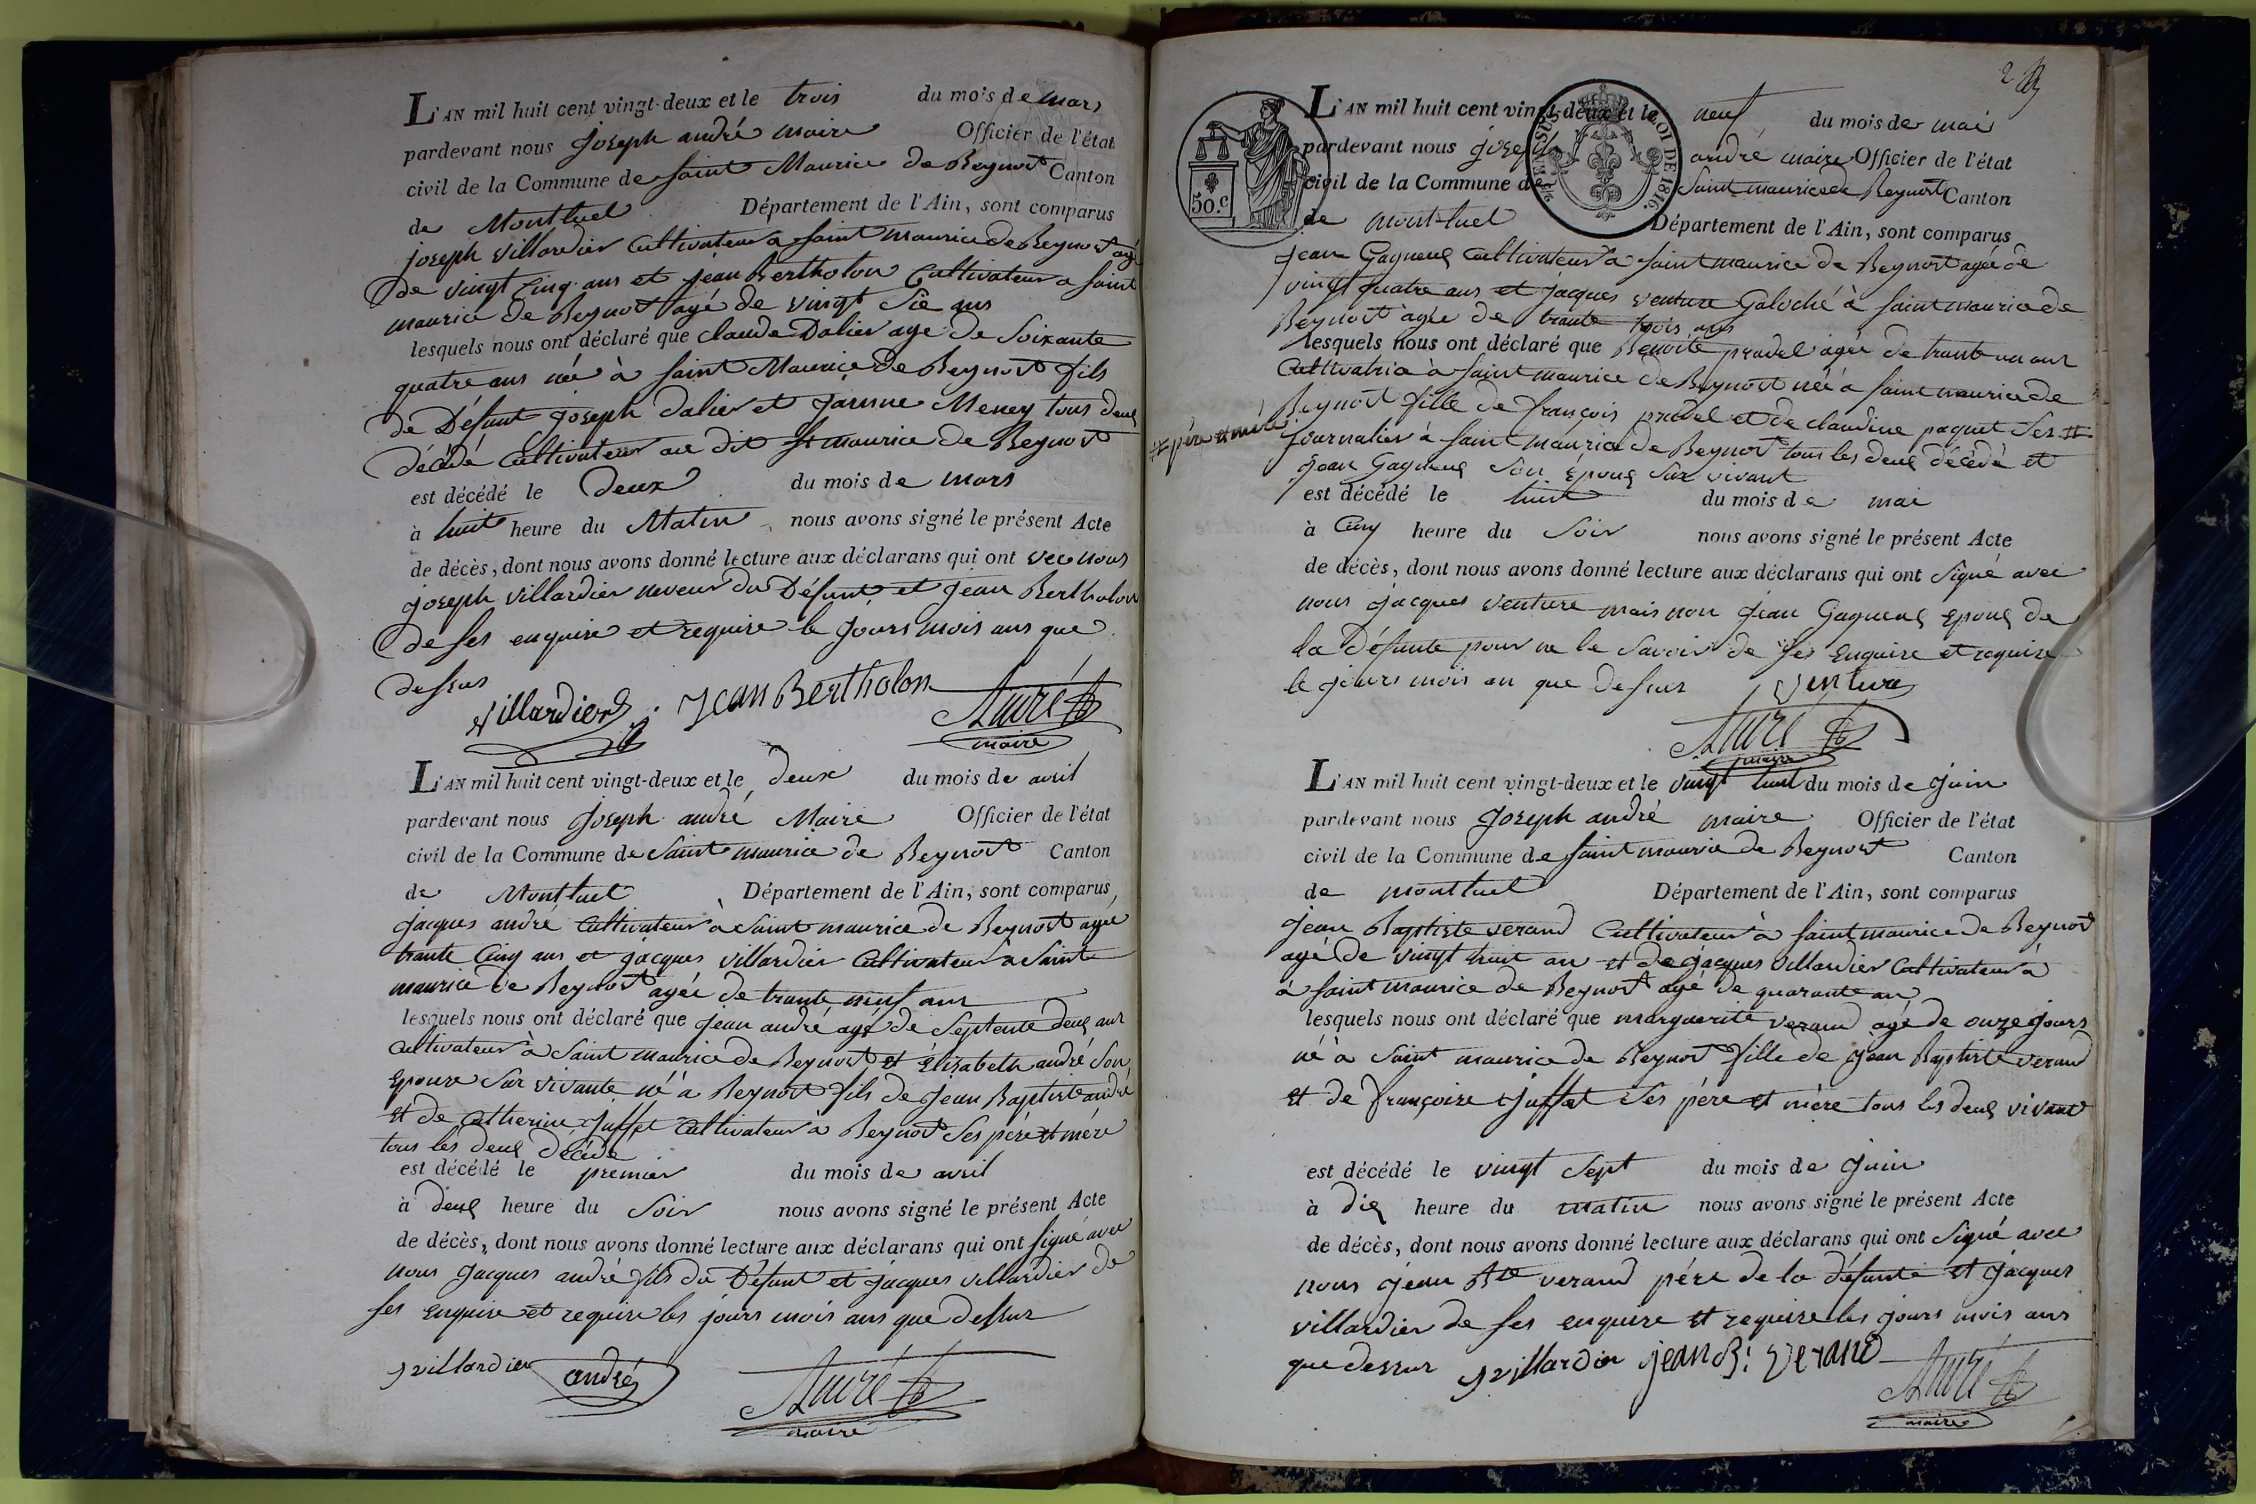 L'AN mil huit cent vingt-deux et le trois du mois de mars
pardevant nous Joseph andré maire Officier de l'état
civil de la Commune de Saint Maurice de Beynost Canton
de Montluel Département de l'Ain, sont comparus
joseph villardier Cultivateur a saint maurice de Beynost agé
de vingt Cinq ans et jean Bertholon Cultivateur a saint
maurice de Beynost agé de vingt Sie ans
lesquels nous ont déclaré que claude Dalier age de Soixante
quatre ans né à saint Maurice de Beynost fils
de Défunt joseph dalier et Meney tous deux
décédé Cultivateur au dit st maurice de Beynost
est décédé le Deux du mois de mars
à huit heure du Matin nous avons signé le présent Acte
de décès, dont nous avons donné lecture aux déclarans qui ont vec nous
joseph villardier neveur du Défunt et jean Bertholon
de ses enquire et require le jours mois ans que
dessus
villardier jean Bertholon André
maire
L'AN mil huit cent vingt-deux et le deux du mois de avril
pardevant nous Joseph andré Maire Officier de l'état
civil de la Commune de Saint maurice de Beynost Canton
de Montluel Département de l'Ain, sont comparus
jacques andré Cultivateur à Saint maurice de Beynost agée
trante Cinq ans et jacques villardier Cultivateur à Saint
maurice de Beynost agée de trante neuf ans
lesquels nous ont déclaré que jean andré agé de Septente deux ans
Cultivateur à Saint maurice de Beynost et Elisabeth andré Son
Epouse Sur vivante né a Beynost fils de Jean Baptiste andré
et de Catherine juffet Cultivateur a Beynost Ses père et mère
tous les deux décédé
est décédé le premier du mois de avril
à deux heure du Soir nous avons signé le présent Acte
de décès, dont nous avons donné lecture aux déclarans qui ont signé avec
nous jacques andré fils du Défunt et jacques villardier de
ses enquire et require les jours mois ans que dessur
villardier andré André
maire
L'AN mil huit cent vingt-deux et le neuf du mois de mai
pardevant nous joseph andré maire Officier de l'état
civil de la Commune de Saint maurice de Beynost Canton
de mont-luel Département de l'Ain, sont comparus
50.c
LOI DE 1816.
jean Gagneux Cultivateur à saint maurice de Beynost agée de
vingt quatre ans et jacques venture Galoché à saint maurice de
Beynost agée de trante trois ans
lesquels nous ont déclaré que Benoite pradel agée de trante un ans
Cultivatrice à Saint maurice de Beynost née a saint maurice de
Beynost fille de françois pradel et de claudine paquet Ses #
# père et mère
journalier à saint maurice de Beynost tous les deux décédé et
jean Gagneux Son Epoux Sur vivant
est décédé le huit du mois de mai
à Cinq heure du Soir nous avons signé le présent Acte
de décès, dont nous avons donné lecture aux déclarans qui ont Signé avec
nous jacques venture mais non jean Gagneux Epoux de
la défunte pour ne le Savoir de ses Enquire et require
le jours mois an que dessus venture
André
maire
L'AN mil huit cent vingt-deux et le vingt huit du mois de juin
pardevant nous Joseph andré maire Officier de l'état
civil de la Commune de saint maurice de Beynost Canton
de montluel Département de l'Ain, sont comparus
jean Baptiste verand Cultivateur à saint maurice de Beynost
agé de vingt huit an et de jacques villardier Cultivateur à
à saint maurice de Beynost agé de quarante an
lesquels nous ont déclaré que marguerite verand agé de onze jours
né à Saint maurice de Beynost fille de jean Baptiste verand
et de françoise juffet Ses père et mère tous les deux vivant
est décédé le vingt Sept du mois de juin
à dix heure du matin nous avons signé le présent Acte
de décès, dont nous avons donné lecture aux déclarans qui ont Signé avec
nous jean Bte verand père de la défunte et jacques
villardier de ses enquire et require les jours mois ans
que dessur villardier jean B. verand André
maire